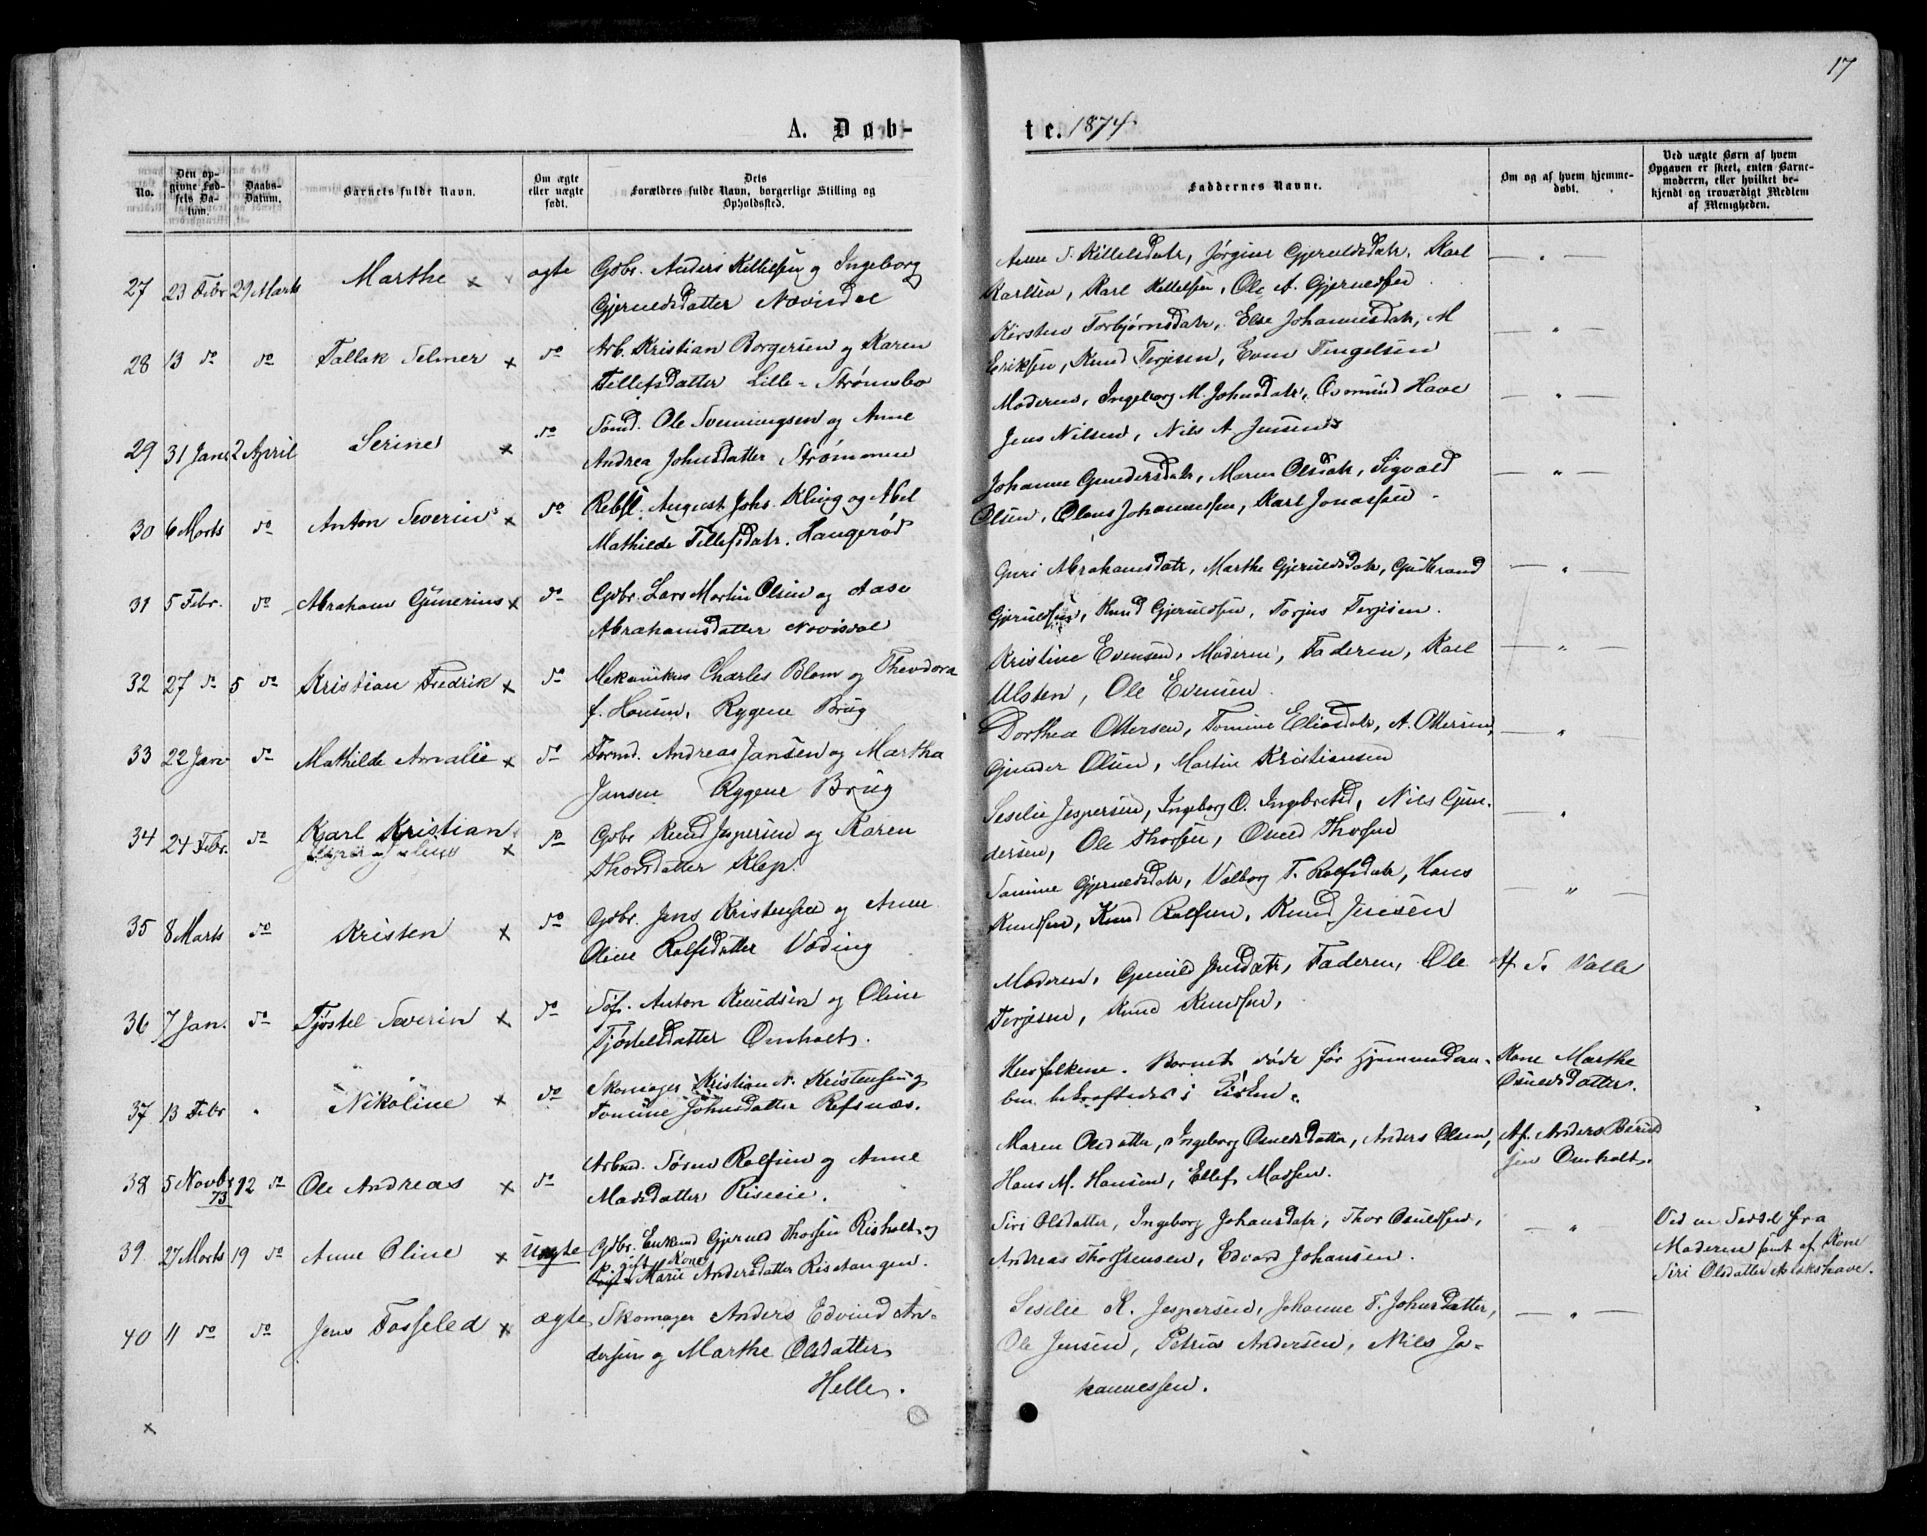 17
A. Døb-
te. 1874.
No.
Den op-
givne Fød-
sels Da-
tum.
Daabs-
Datum.
Barnets fulde Navn.
Om ægte
eller uægte
født.
Dets
Forældres fulde Navn, borgerlige Stilling og
Opholdssted.
Faddernes Navne.
Om og af hvem hjemme-
døbt.
Ved uægte Børn af hvem
Opgaven er skeet, enten Barne-
moderen, eller hvilket be-
kjendt og troværdigt Medlem
af Menigheden.
27 23 Febr 29 Marts Marthe x ægte Gdbr. Anders Kittilsen og Ingeborg
Gjeruldsdatter Nævisdal
Kittelsdatr, Jørgine Gjeruldsdatr, Karl
Karlsen, Karl Kittelsen, Ole A. Gjeruldsen
28 13 do do Tallak Selmer x do Arb. Kristian Borgersen og Karen
Tellefsdatter Lille-Strømsbo
Kirsten Torbjørnsdatr, Else Johannesdatr, M
Eriksen, Knud Terjesen, Even Tengelsen
29 31 Jan 2 April Serine x do Ole Svenningsen og Anne
Andrea Johnsdatter Strømmen
Moderen, Ingeborg M. Johnsdatr, Osmund Have
Jens Nilsen, Nils A. Jensen
30 6 Marts do Anton Severin x do Rebsl. August Johs. Kling og Abel
Mathilde Tellefsdatr. Haugerød
Johanne Gundersdatr, Maren Olsdatr, Sigvald
Olsen, Olaus Johannessen, Karl Jonassen
31 5 Febr. do Abraham Gunerius x do Gdbr. Lars Martin Olsen og Aase
Abrahamsdatter Novisdal
Guri Abrahamsdatr, Marthe Gjeruldsdatr, Gudbrand
Gjeruldsen, Knud Gjeruldsen, Torjus Terjesen.
32 27 do 5 do Kristian Fredrik x do Mekanikus Charles Blom og Theodora
f. Hansen, Rygene Brug
Kristine Evensen, Moderen, Faderen, Karl
Ulsten, Ole Evensen.
33 22 Jan do Mathilde Amalie x do Formd. Andreas Jansen og Martha
Jansen Rygene Brug
Dorthea Ottersen, Tomine Eliasdatr, A. Ottersen,
Gunder Olsen, Martin Kristiansen
34 24 Febr. do Karl Kristian
x do Gdbr Knud Jespersen og Karen
Thorsdatter Klep.
Seselie Jespersen, Ingeborg O. Ingebretsd, Nils Gun-
dersen, Ole Thorsen, Osuld Thorsen
35 8 Marts do Kristen x do Gdbr. Jens Kristensen og Anne
Oline Rolfsdatter Voding
Samine Gjeruldsdatr, Valborg T. Rolfsdatr, Hans
Knudsen, Knud Rolfsen, Knud Jensen
36 7 Jan. do Tjøstel Severin x do Anton Knudsen og Oline
Tjøstelsdatter Omholt.
Moderen, Gunild Jensdatr, Faderen, Ole
Terjesen, Knud Knudsen,
Af S. Valle
37 13 Febr Nikoline x do Skomager Kristian N. Kristensen og
Tomine Johnsdatter Refsnæs.
Huusfolkene. Barnet døde før Hjemmedaa-
ben bekræftedes i Kirken.
Kone Marthe
Osuldsdatter.
38 5 Novbr
73 12 do Ole Andreas x do Arbmd. Søren Rolfsen og Anne
Madsdatter Riseeie.
Maren Olsdatter, Ingeborg Osuldsdatter, Anders Olsen,
Hans M. Hansen, Ellef Madsen.
Af. Anders
Omholt.
39. 27 Marts 19 do Anne Oline x Uægte Gdbr. Enkemd Gjeruld Thorsen Risholt og
p. gift Kone
Marie Andersdatter Risetangen.
Siri Olsdatter, Ingeborg Johansdatr, Thor Osuldsen,
Andreas Thorstensen, Edvard Johansen.
Ved en Seddel fra
Moderen samt af Kone
Siri Olsdatter
40 11 do do Jens Fosseled x ægte Skomager Anders Edvind An-
dersen og Marthe Olsdatter
Helle.
Seselie K. Jespersen, Johanne T. Johnsdatter,
Ole Jensen, Petrus Andersen, Niels Jo-
hannessen.
x